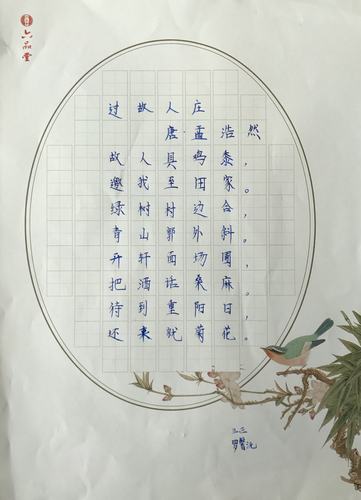 六品堂
过故人庄
唐 孟浩然
故人具鸡黍，
邀我至田家。
绿树村边合，
青山郭外斜。
开轩面场圃，
把酒话桑麻。
待到重阳日，
还来就菊花。
三三